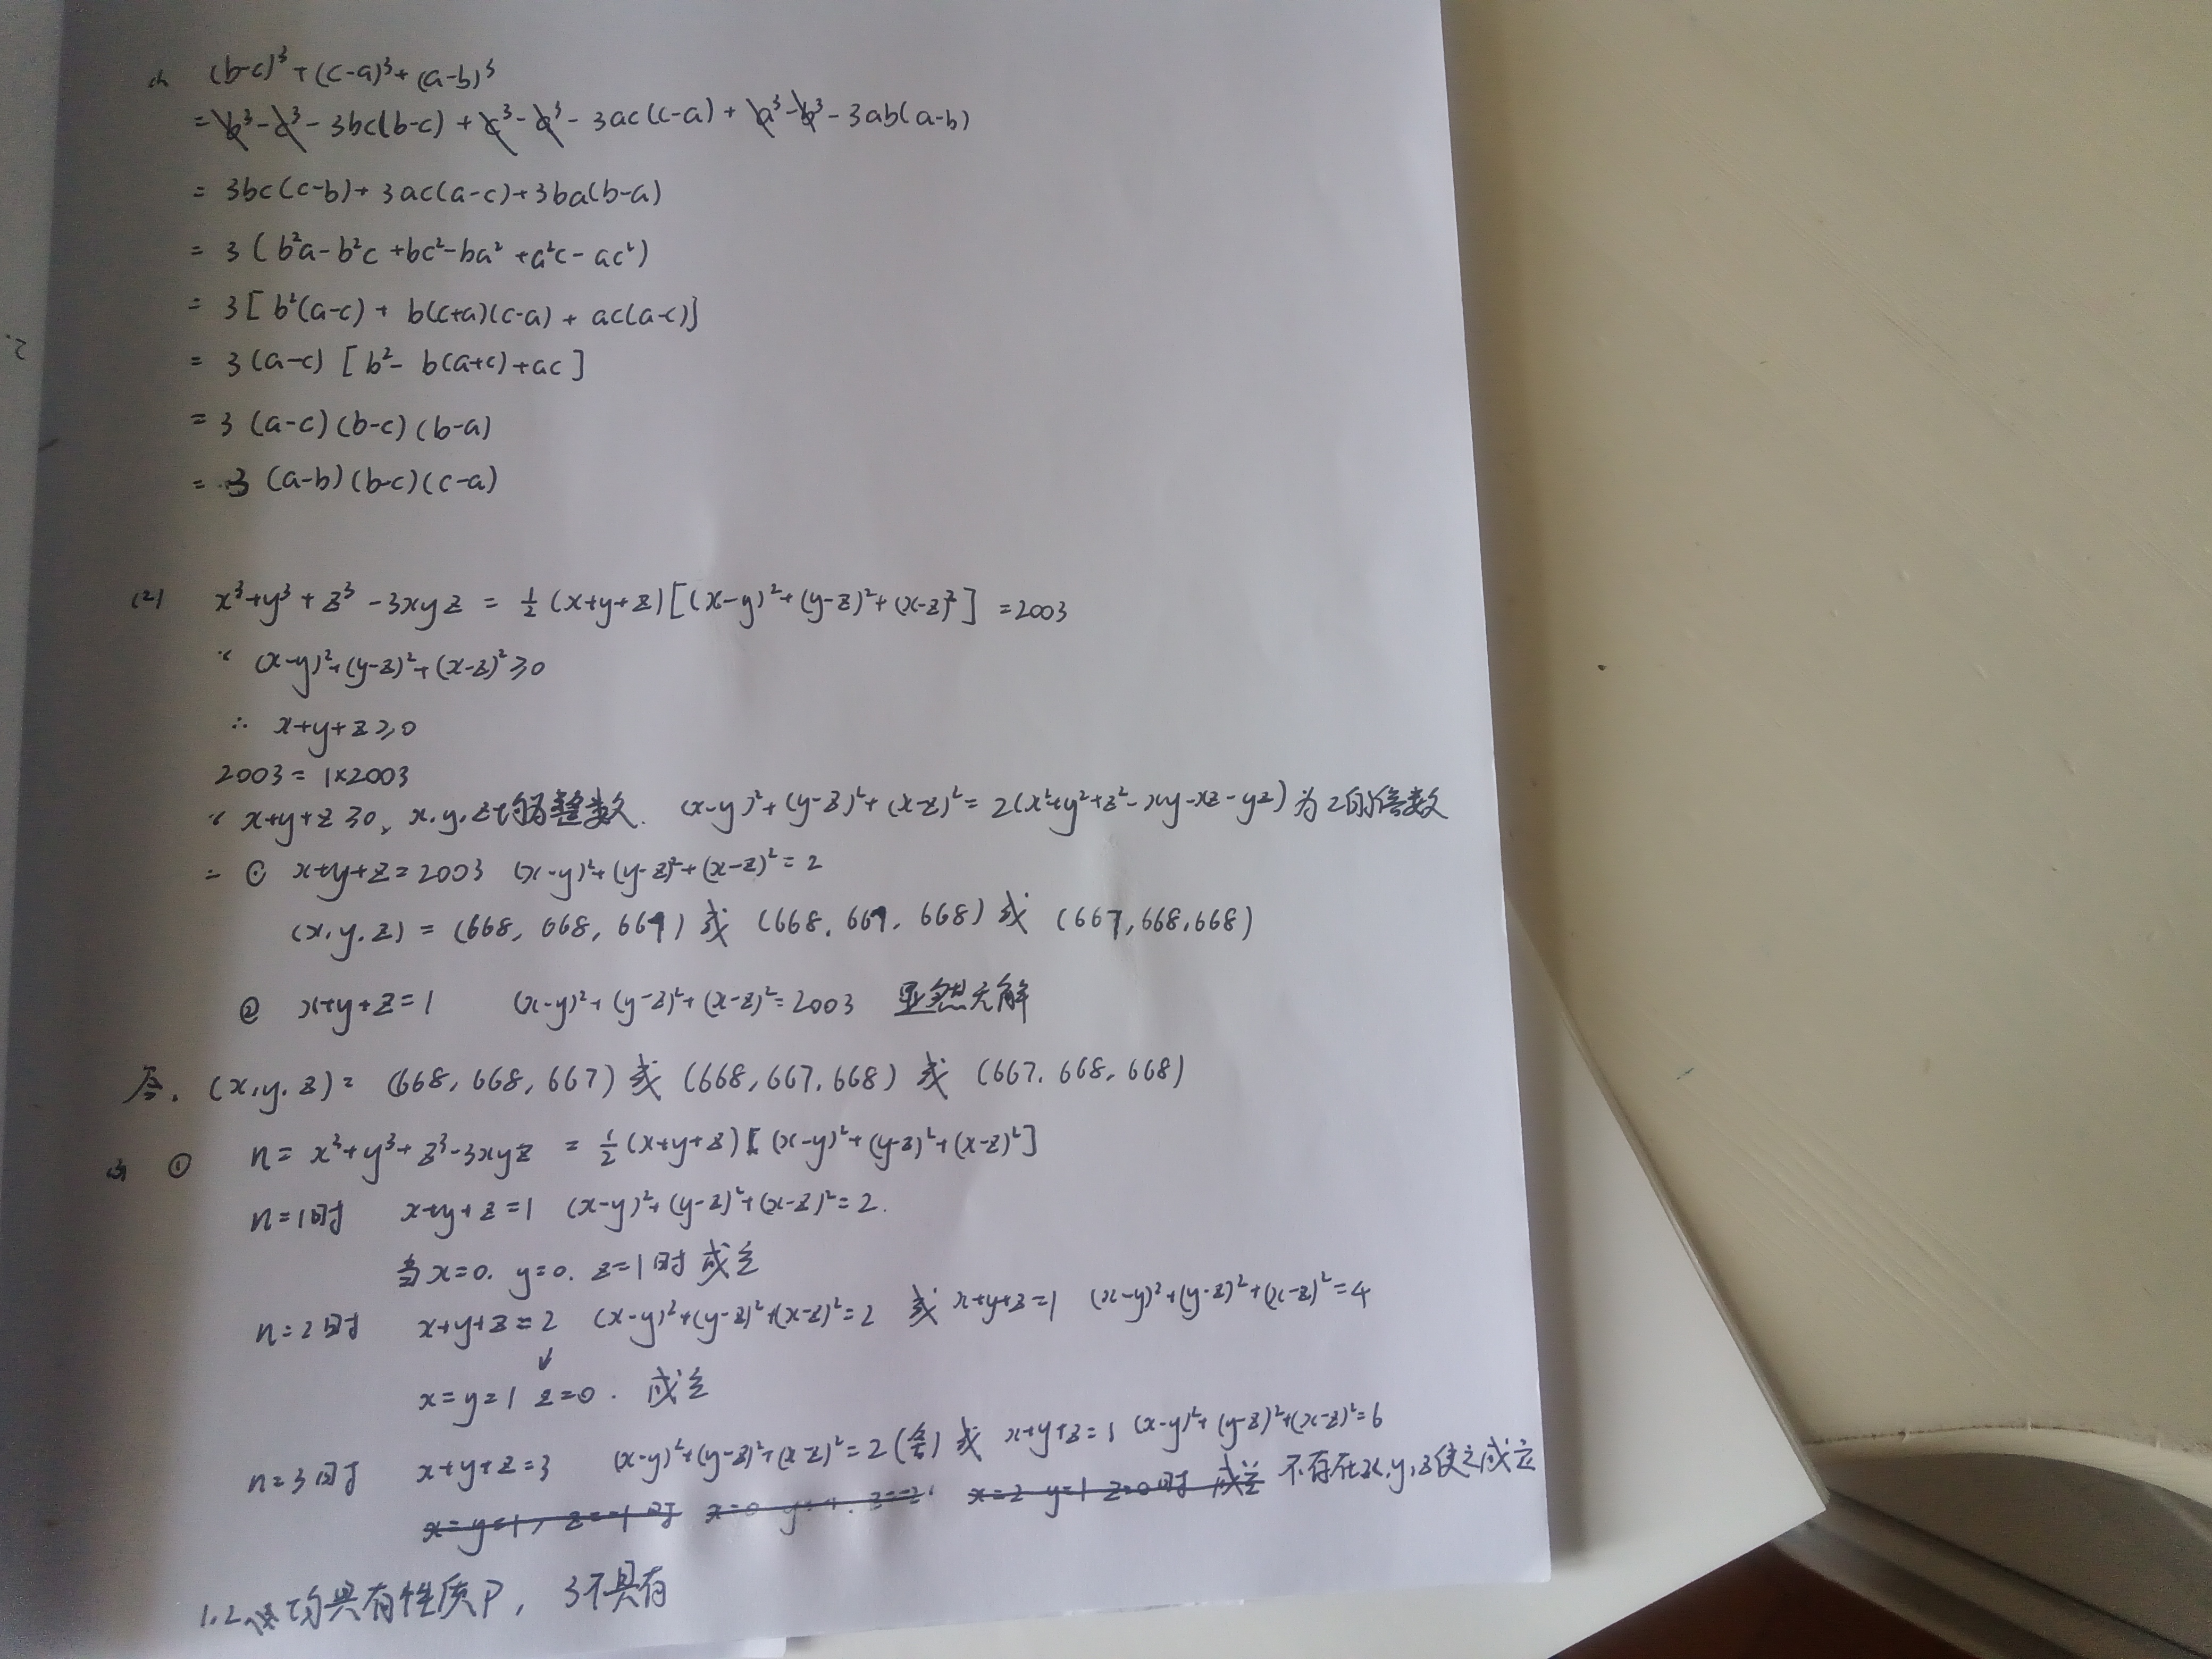 (1) (b-c)³+(c-a)³+(a-b)³
= b³-c³-3bc(b-c)+c³-a³-3ac(c-a)+a³-b³-3ab(a-b)
= 3bc(c-b)+3ac(a-c)+3ba(b-a)
= 3(b²a-b²c+bc²-ba²+a²c-ac²)
= 3[b²(a-c)+b(c+a)(c-a)+ac(a-c)]
= 3(a-c)[b²-b(a+c)+ac]
= 3(a-c)(b-c)(b-a)
= 3(a-b)(b-c)(c-a)
(2) x³+y³+z³-3xyz = ½(x+y+z)[(x-y)²+(y-z)²+(x-z)²] = 2003
∵ (x-y)²+(y-z)²+(x-z)²≥0
∴ x+y+z≥0
2003=1×2003
∵ x+y+z≥0, x.y.z均为整数. (x-y)²+(y-z)²+(x-z)²=2(x²+y²+z²-xy-xz-yz)为2的倍数
= ① x+y+z=2003 (x-y)²+(y-z)²+(x-z)²=2
(x.y.z) = (668, 668, 667) 或 (668. 667. 668) 或 (667,668,668)
② x+y+z=1 (x-y)²+(y-z)²+(x-z)²=2003 显然无解
答. (x,y,z)= (668, 668, 667) 或 (668, 667. 668) 或 (667. 668, 668)
(3) ① n= x³+y³+z³-3xyz = ½(x+y+z)[(x-y)²+(y-z)²+(x-z)²]
n=1时 x+y+z=1 (x-y)²+(y-z)²+(x-z)²=2.
当x=0. y=0. z=1时成立
n=2时 x+y+z=2 (x-y)²+(y-z)²+(x-z)²=2 或 x+y+z=1 (x-y)²+(y-z)²+(x-z)²=4
↓
x=y=1 z=0. 成立
n=3时 x+y+z=3 (x-y)²+(y-z)²+(x-z)²=2(舍) 或 x+y+z=1 (x-y)²+(y-z)²+(x-z)²=6
x=y=1, z=-1时 x=2 y=1 z=0时 成立 不存在x,y,z使之成立
1.2均具有性质P, 3不具有